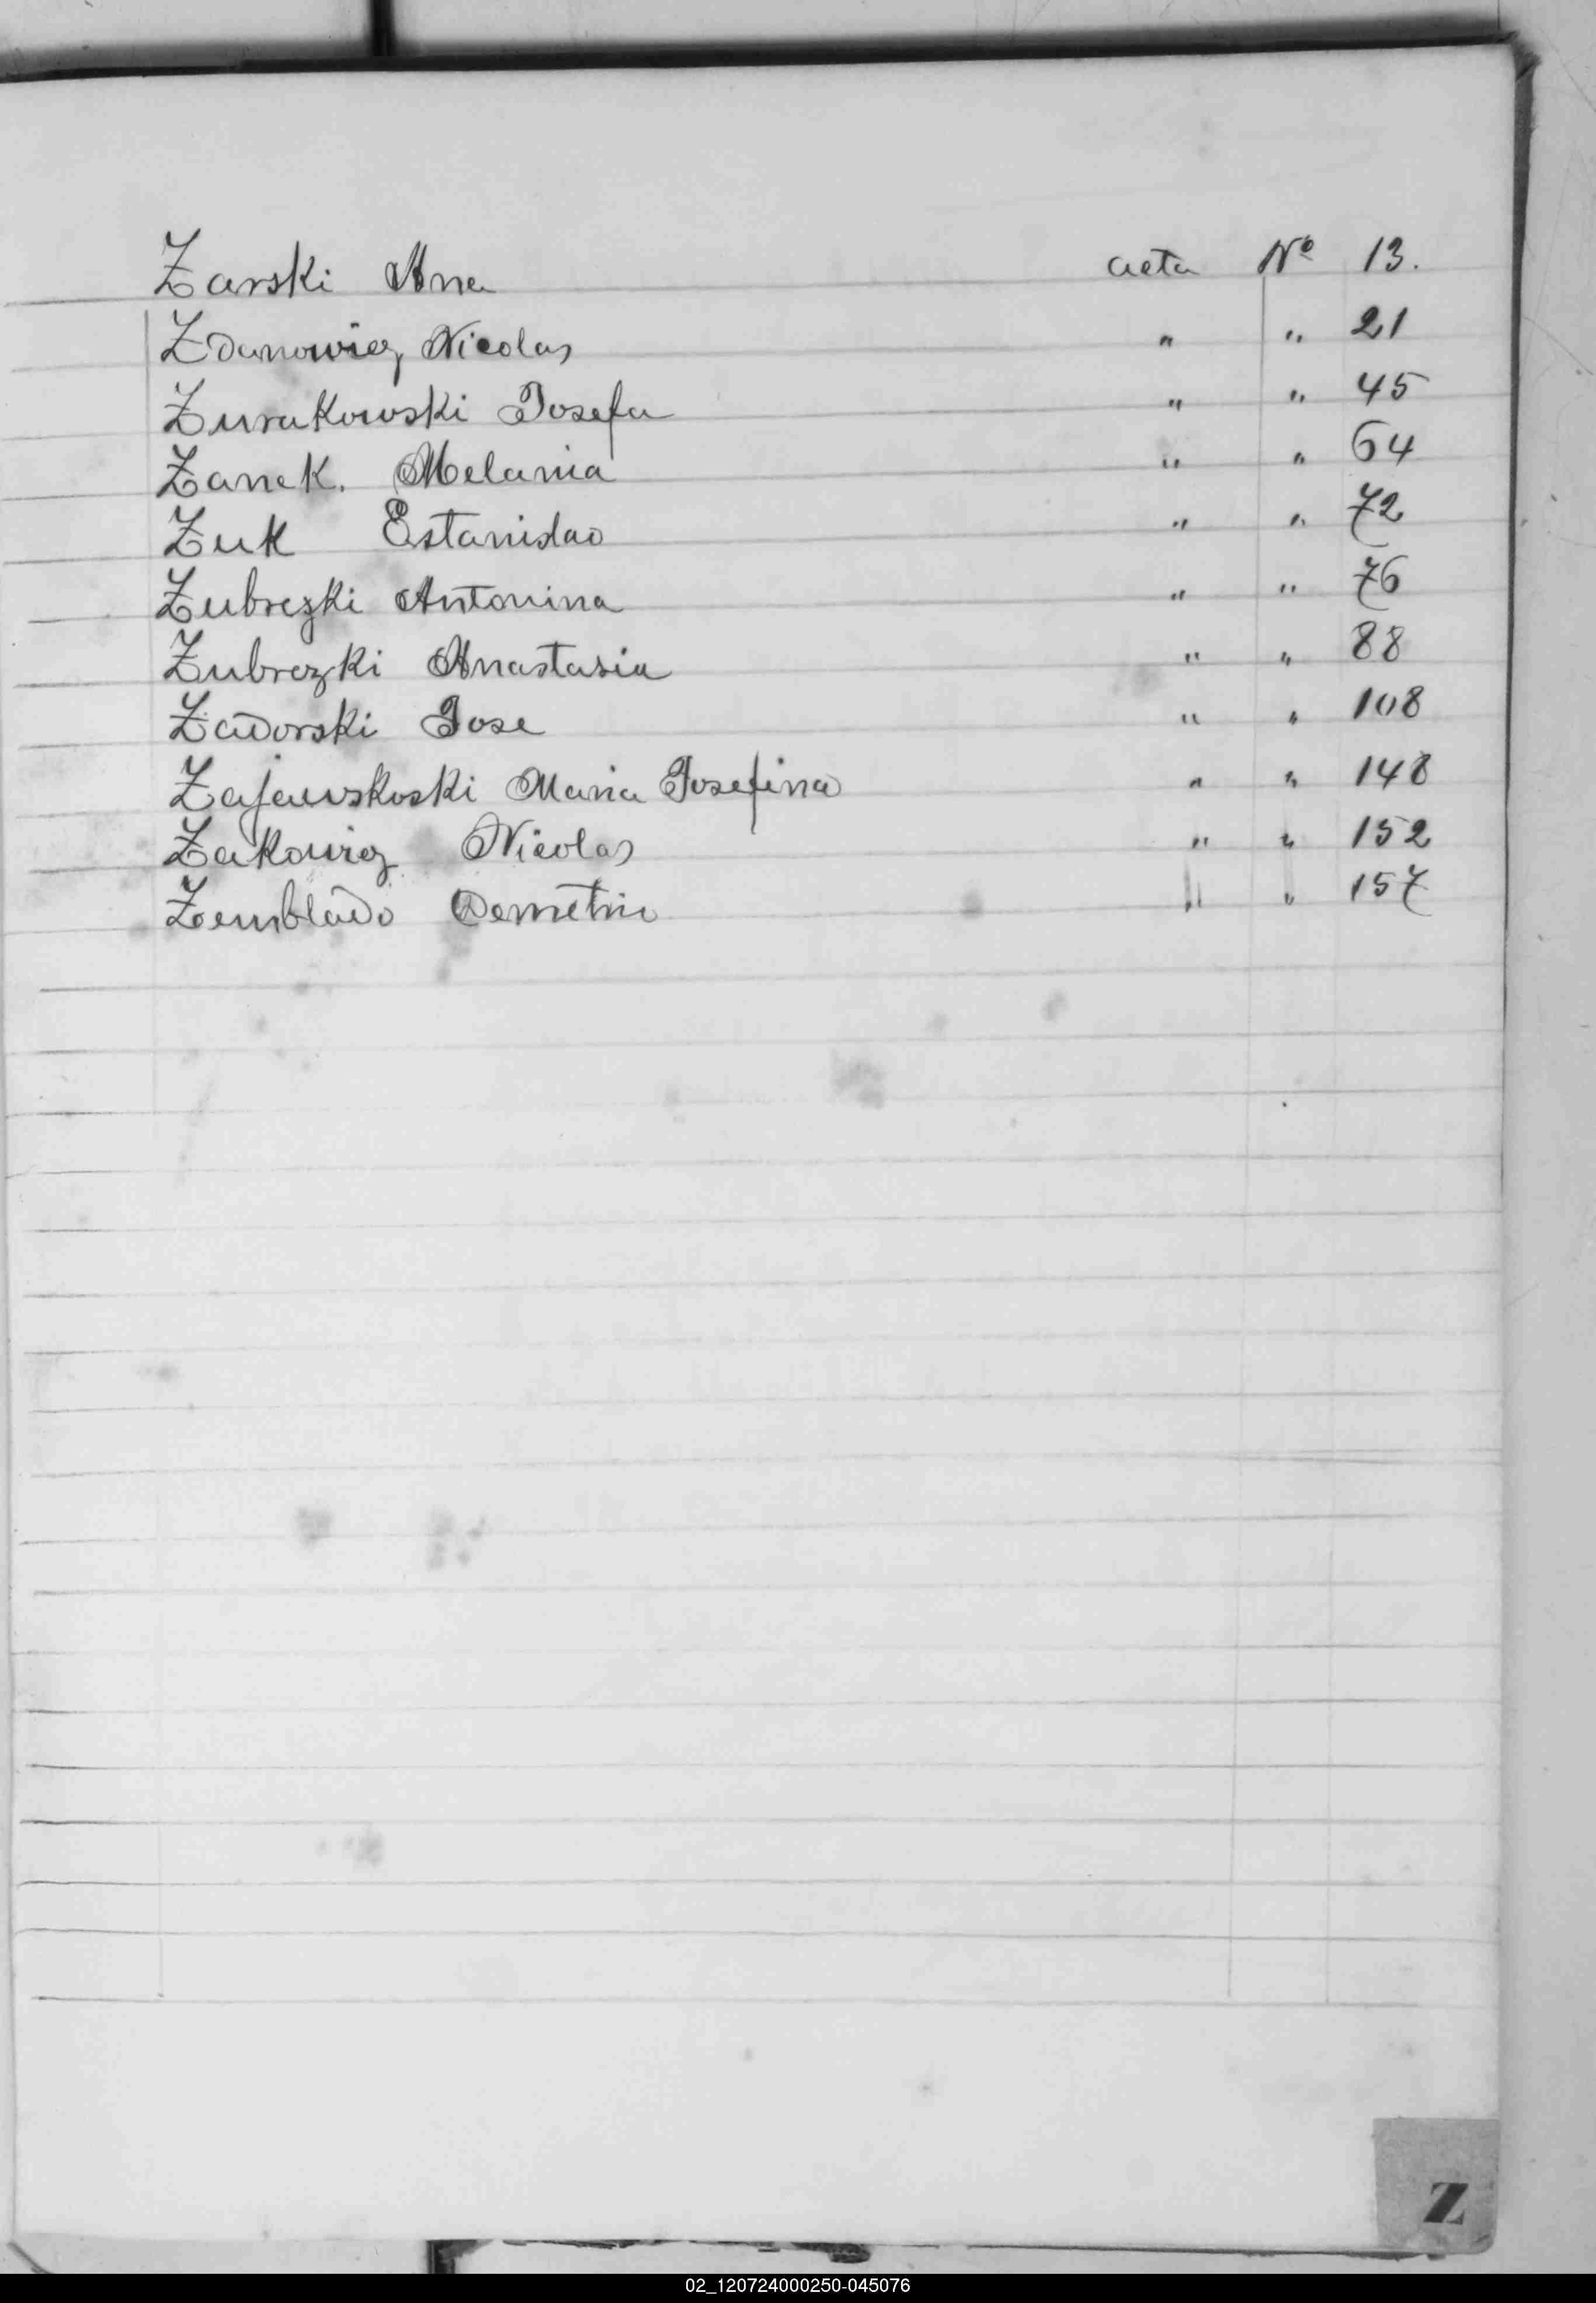 Zarski Ana acta Nº 13.
Zdanowicz Nicolas " " 21
Zurakowski Josefa " " 45
Zanek. Melania " " 64
Zuk Estanislao " " 72
Zubrezki Antonina " " 76
Zubrezki Anastasia " " 88
Zadorski Jose " " 108
Zajauskoski Maria Josefina " " 148
Zakowicz Nicolas " " 152
Zemblado Demetrio " " 157
Z
02_120724000250-045076